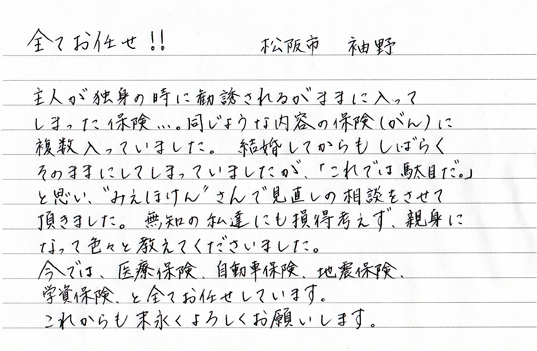 全てお任せ!! 松阪市 袖野
主人が独身の時に勧誘されるがままに入って
しまった保険…。同じような内容の保険(がん)に
複数入っていました。 結婚してからもしばらく
そのままにしてしまっていましたが、「これでは駄目だ。」
と思い、"みえほけん"さんで見直しの相談をさせて
頂きました。 無知の私達にも損得考えず、親身に
なって色々と教えてくださいました。
今では、医療保険、自動車保険、地震保険、
学資保険、と全てお任せしています。
これからも末永くよろしくお願いします。